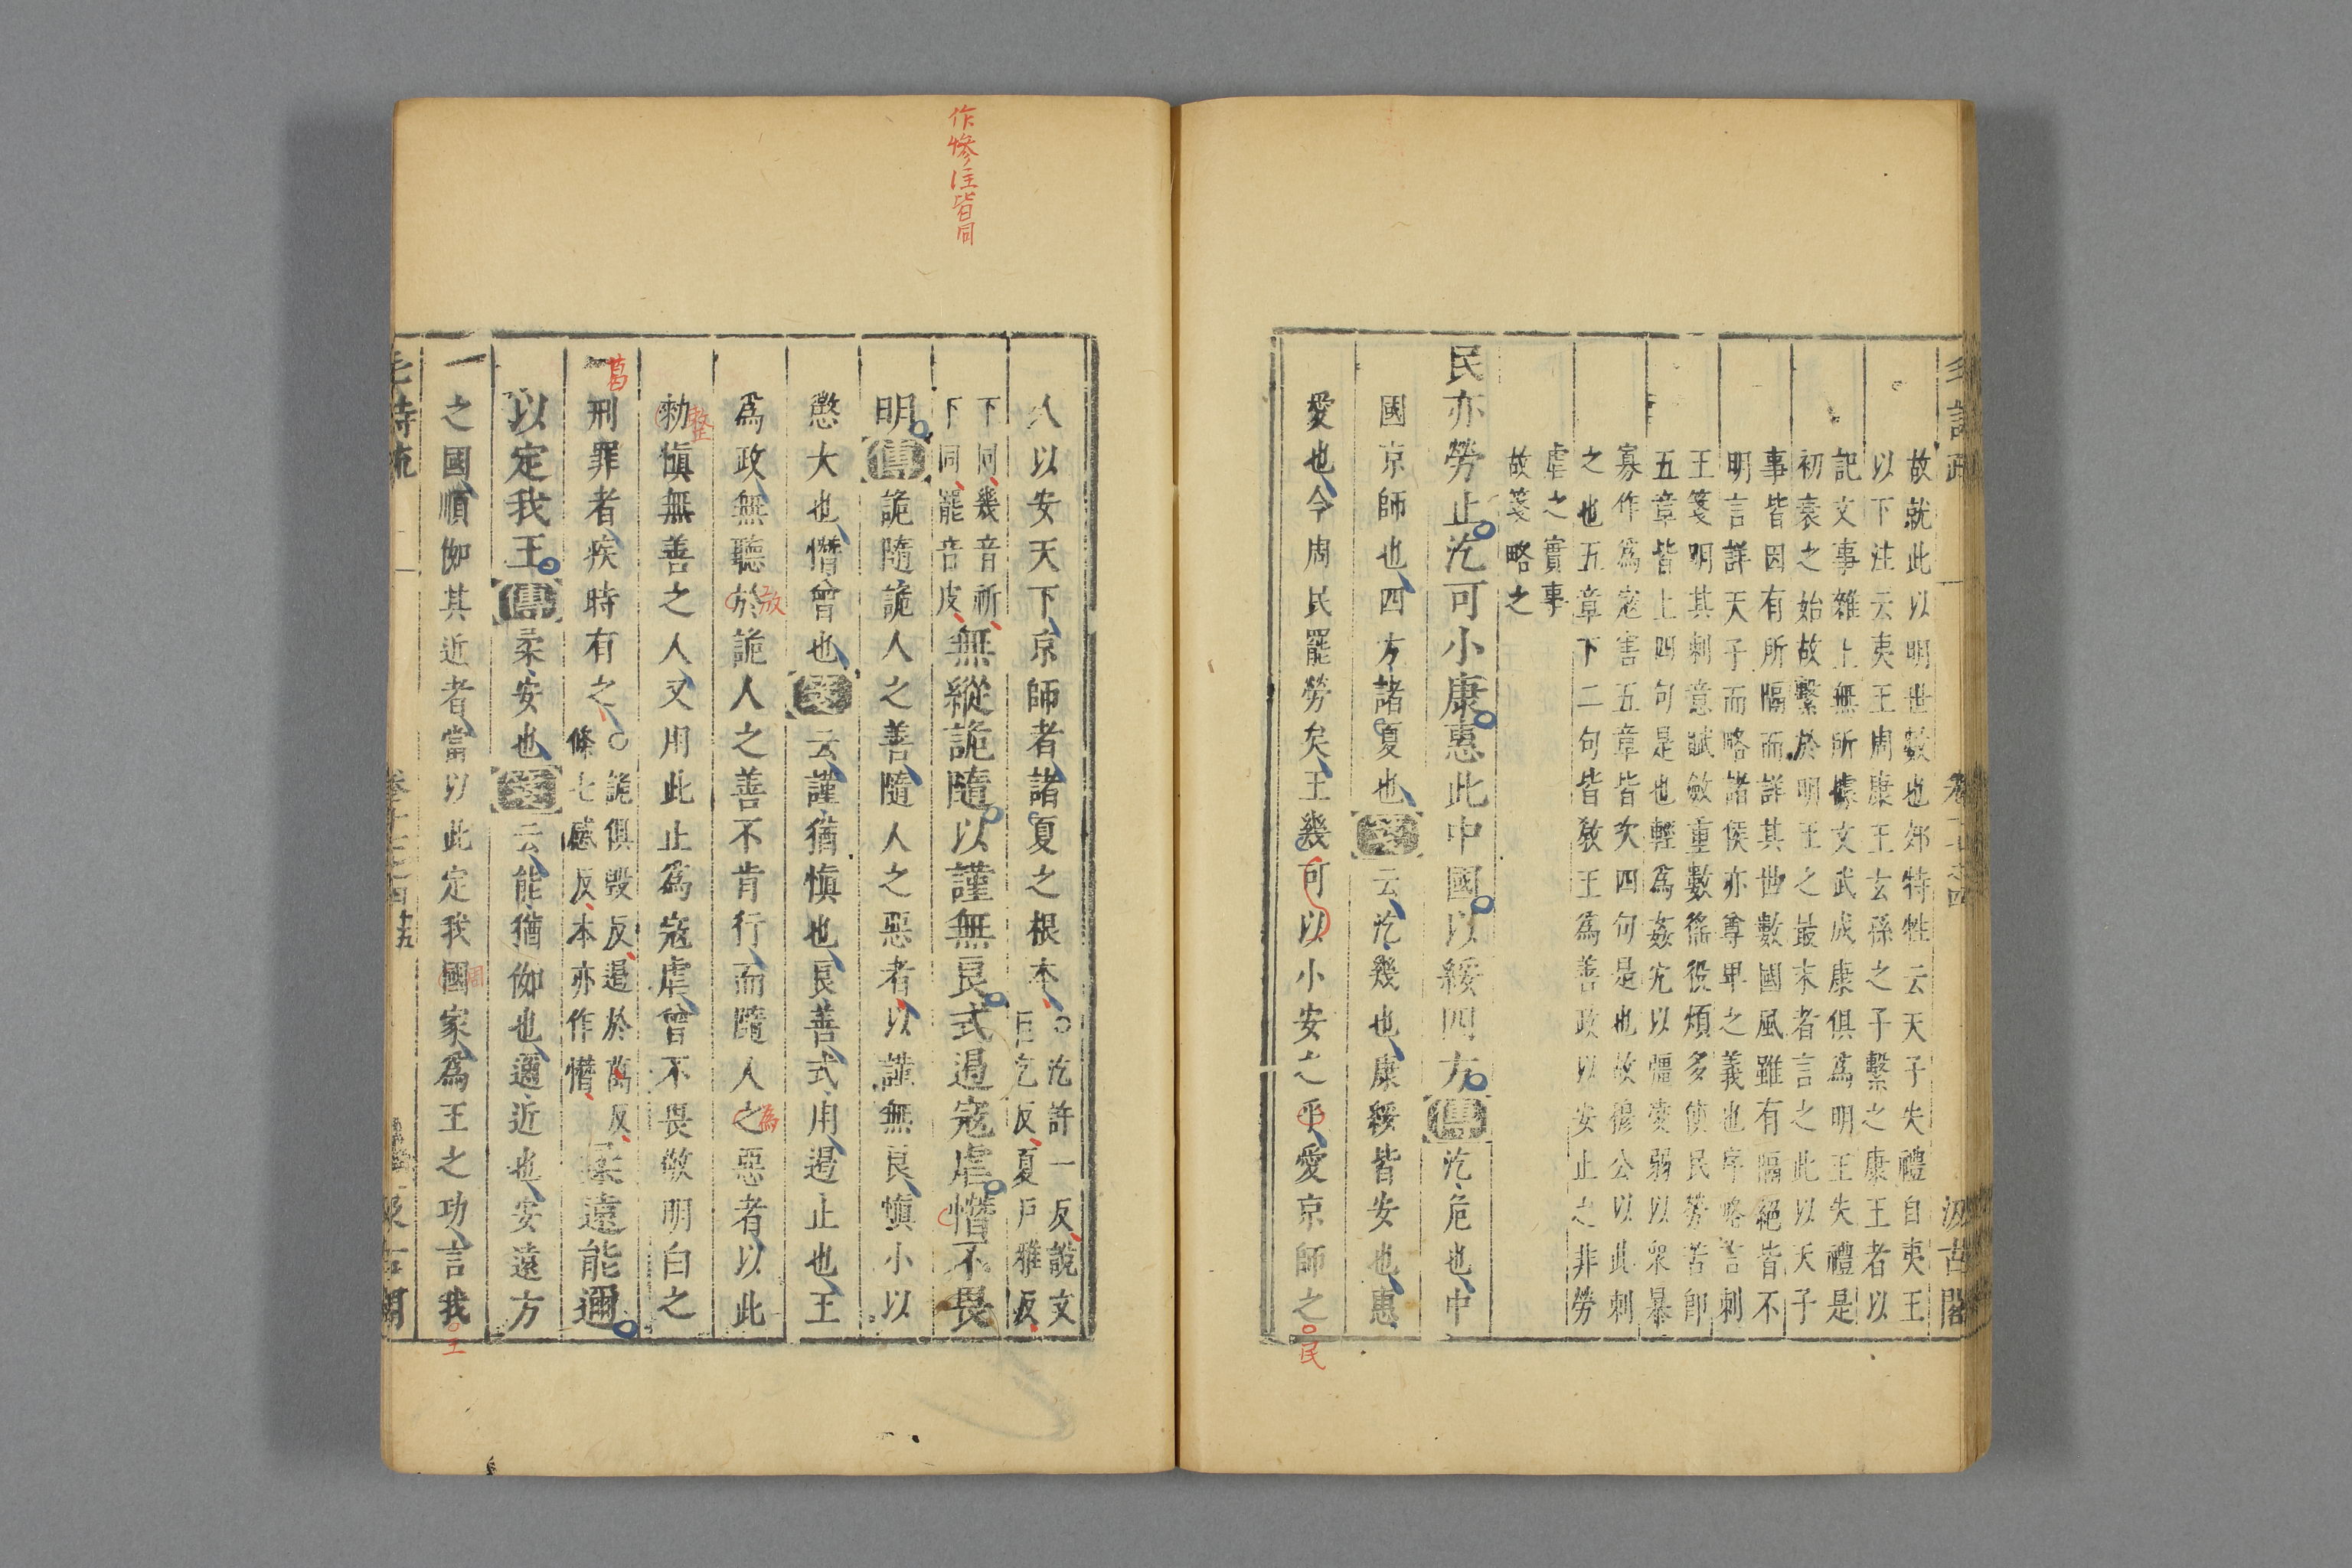 毛詩疏 卷十七之四 汲古閣
故就此以明世數也郊特牲云天子失禮自夷王
以下注云夷王周康王玄孫之子繫之康王者以
記文事雜上無所據文武成康俱為明王失禮是
初衰之始故繫於明王之最末者言之此以天子
事皆因有所隔而詳其世數國風雖有隔絕皆不
明言詳天子而略諸侯亦尊卑之義也序略言刺
王箋明其刺意賦斂重數徭役煩多使民勞苦即
五章皆上四句是也輕為姦宄以彊凌弱以眾暴
寡作為寇害五章皆次四句是也故穆公以此刺
之也五章下二句皆敎王為善政以安止之非勞
虐之實事
故箋略之
民亦勞止汔可小康惠此中國以綏四方傳汔危也中
國京師也四方諸夏也箋云汔幾也康綏皆安也惠
愛也今周民罷勞矣王幾可以小安之乎愛京師之
民
人以安天下京師者諸夏之根本○汔許一反說文
巨乞反夏戶雅反
下同幾音祈
下同罷音皮無縱詭隨以謹無良式遏寇虐憯不畏
作慘注皆同
明傳詭隨詭人之善隨人之惡者以謹無良慎小以
懲大也憯曾也箋云謹猶慎也良善式用遏止也王
為政無聽於詭人之善不肯行而隨人之惡者以此
放
為
勑慎無善之人又用此止為寇虐曾不畏敬明白之
整
刑罪者疾時有之○詭俱毀反遏於葛反
慘七感反本亦作憯柔遠能邇
葛
以定我王傳柔安也箋云能猶伽也邇近也安遠方
之國順伽其近者當以此定我國家為王之功言我
周
王
毛詩疏 卷十七之四 五 汲古閣